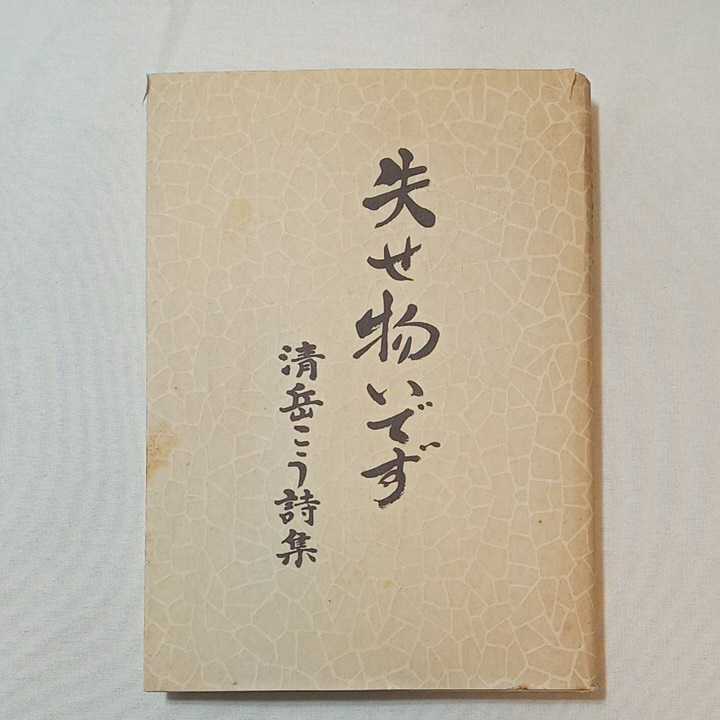 失せ物いでず
清岳こう詩集